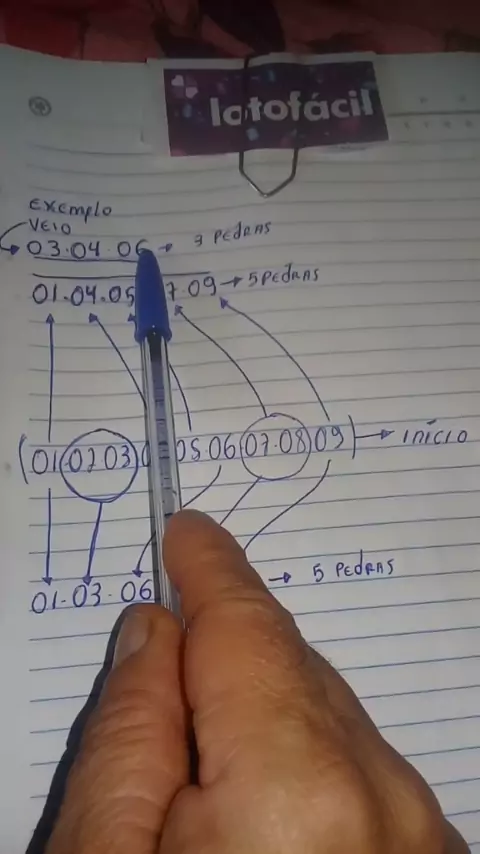 lotofácil
Exemplo
VEIO
03·04·06 → 3 PEDRAS
01·04·05 7·09 → 5 PEDRAS
(01·02·03 05·06·07·08·09) → INÍCIO
01·03·06 → 5 PEDRAS